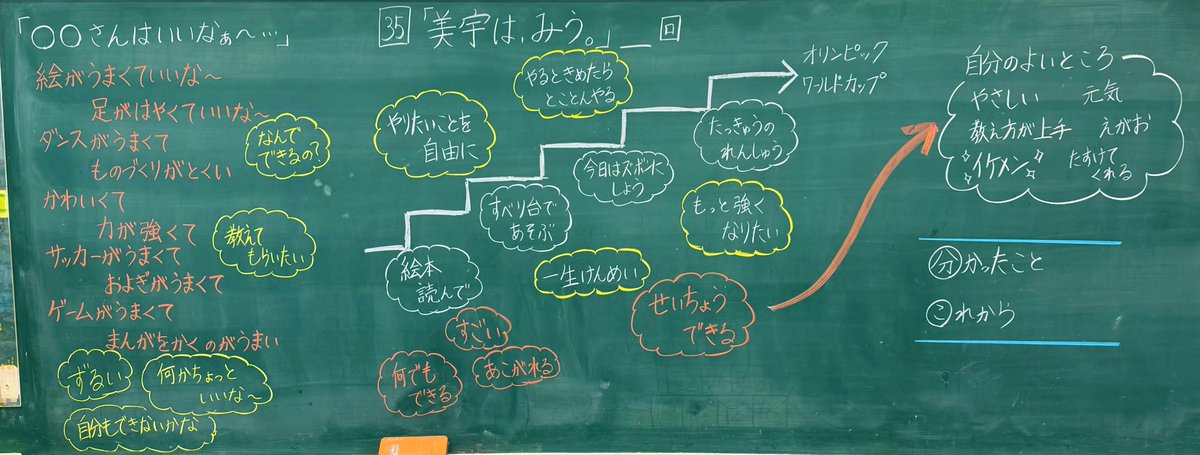 「〇〇さんはいいなぁ〜…」
絵がうまくていいな〜
足がはやくていいな〜
ダンスがうまくて
ものづくりがとくい
かわいくて
力が強くて
サッカーがうまくて
およぎがうまくて
ゲームがうまくて
まんがをかくのがうまい
なんで
できるの?
教えて
もらいたい
ずるい
何かちょっと
いいな〜
自分もできないかな
35 「美宇は、みう。」__回
やりたいことを
自由に
やるときめたら
とことんやる
絵本
読んで
すべり台で
あそぶ
今日はズボンに
しよう
たっきゅうの
れんしゅう
オリンピック
ワールドカップ
一生けんめい
もっと強く
なりたい
すごい
何でも
できる
あこがれる
せいちょう
できる
自分のよいところ
やさしい 元気
教え方が上手 えがお
イケメン たすけて
くれる
分かったこと
これから